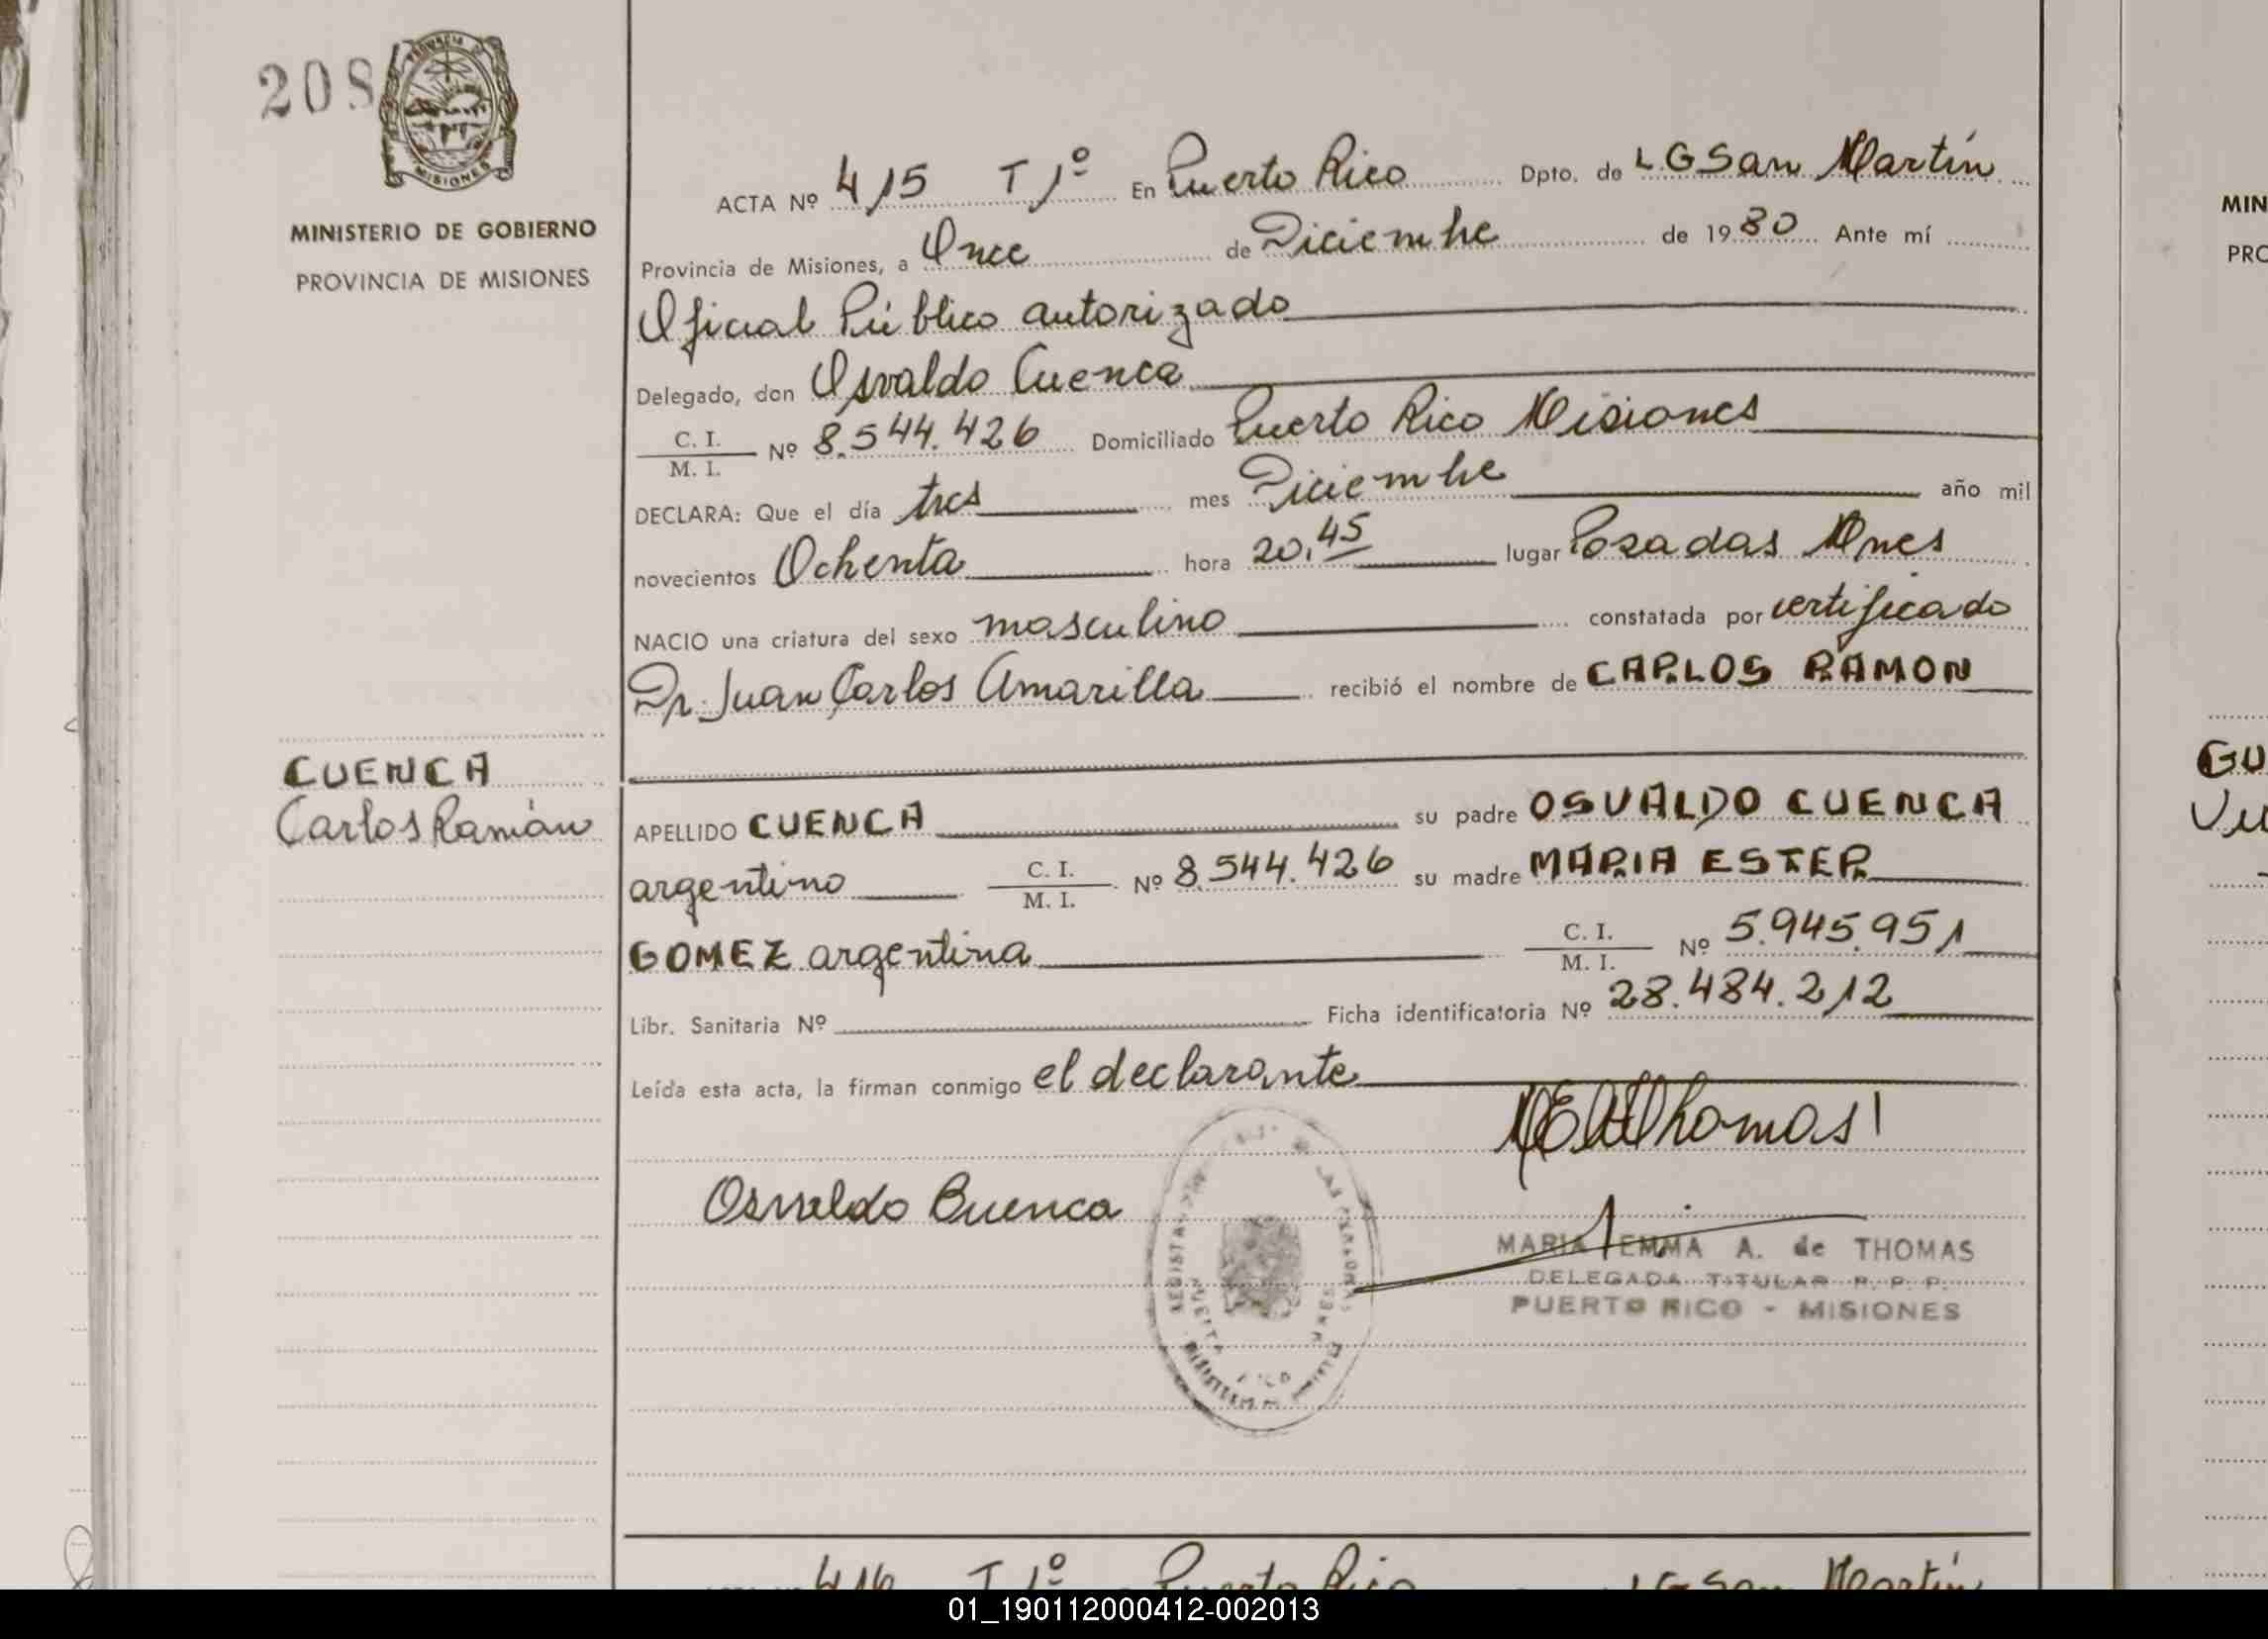 208
PROVINCIA DE
MISIONES
MINISTERIO DE GOBIERNO
PROVINCIA DE MISIONES
CUENCA
Carlos Ramón
ACTA Nº 415 T 1º En Puerto Rico Dpto. de L.G San Martín
Provincia de Misiones, a Once de Diciembre de 1980 Ante mí
Oficial Público autorizado
Delegado, don Osvaldo Cuenca
C. I.
M. I. Nº 8.544.426 Domiciliado Puerto Rico Misiones
DECLARA: Que el día tres mes Diciembre año mil
novecientos Ochenta hora 20,45 lugar Posadas Mnes
NACIO una criatura del sexo masculino constatada por certificado
Dr. Juan Carlos Amarilla recibió el nombre de CARLOS RAMON
APELLIDO CUENCA su padre OSVALDO CUENCA
argentino C. I. M. I. Nº 8.544.426 su madre MARIA ESTER
GOMEZ argentina C. I. M. I. Nº 5.945.951
Libr. Sanitaria Nº Ficha identificatoria Nº 28.484.212
Leída esta acta, la firman conmigo el declarante
Thomas
Osvaldo Cuenca
MARIA EMMA A. de THOMAS
DELEGADA TITULAR R. P. P.
PUERTO RICO - MISIONES
416 T 1º Puerto Rico L G San Martín
MIN
PRO
GU
01_190112000412-002013